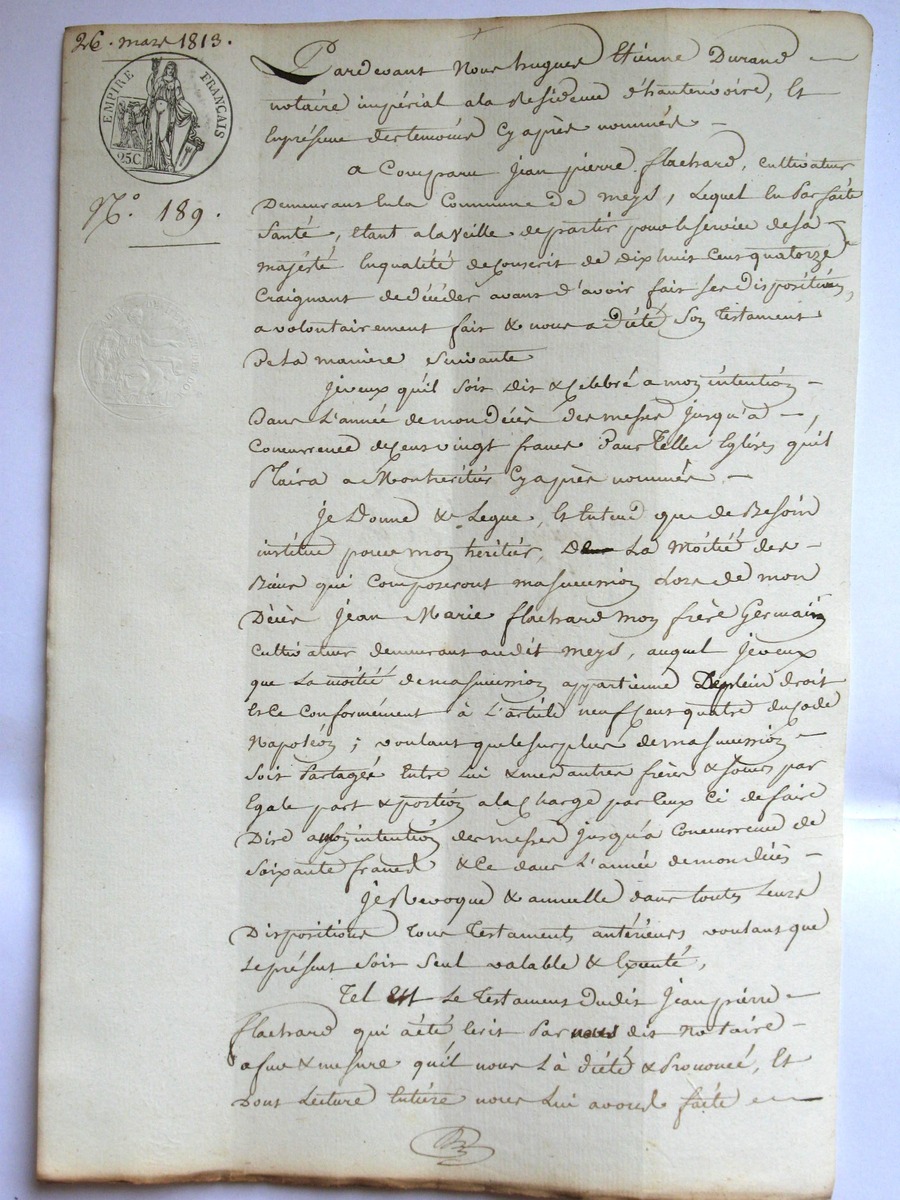 26. mars 1813.
EMPIRE FRANÇAIS
25C
N.º 189.
Pardevant Nous hugues Etienne Durand
notaire impérial a la Residence d'hauterivoire, Et
En présence des temoins Cy après nommés
a Comparu Jean pierre flachard, Cultivateur
Demeurant En la Commune de meys, Lequel En Parfaite
Santé, Etant a la veille de partir pour le service de sa
majésté En qualité de Conscrit de dix huit Cent quatorze
Craignant de déceder avant d'avoir fait ses dispositions,
a volontairement fait & nous a dicté Son Testament
De La maniere Suivante
Je veux qu'il Soit Dit & Celebré a mon intention
Dans L'année de mon Décès des messes jusqu'à
Concurrence de Cent vingt francs dans Telles Eglises qu'il
Plaira a Mon heritier Cy après nommé.
Je Donne & Legue, Et Entend que de Besoin
institue pour mon heritier, De La Moitié des
Biens qui Composeront ma succession Lors de mon
Décès Jean Marie flachard mon frère Germain
Cultivateur demeurant audit meys, auquel je veux
que La moitié de ma succession appartienne De plein droit
Et Ce Conformément à L'article neuf Cent quatre du Code
Napoléon; voulant que le surplus de ma succession
Soit Partagée Entre Lui & mes autres frères & soeurs par
Egale part & portion a la Charge par Ceux Ci de faire
Dire a mon intention des messes jusqu'a Concurrence de
Soixante francs & Ce dans L'année de mon décès
Je Revoque & annulle dans toutes Leurs
Dispositions Tous Testaments antérieurs voulant que
Le présent Soit Seul valable & Exécuté,
Tel Est Le Testament Dudit Jean pierre
flachard qui a été Ecrit Par nous dit Notaire
a fur & mesure qu'il nous L'a dicté & Prononcé, Et
Dont Lecture Entière nous Lui avons faite